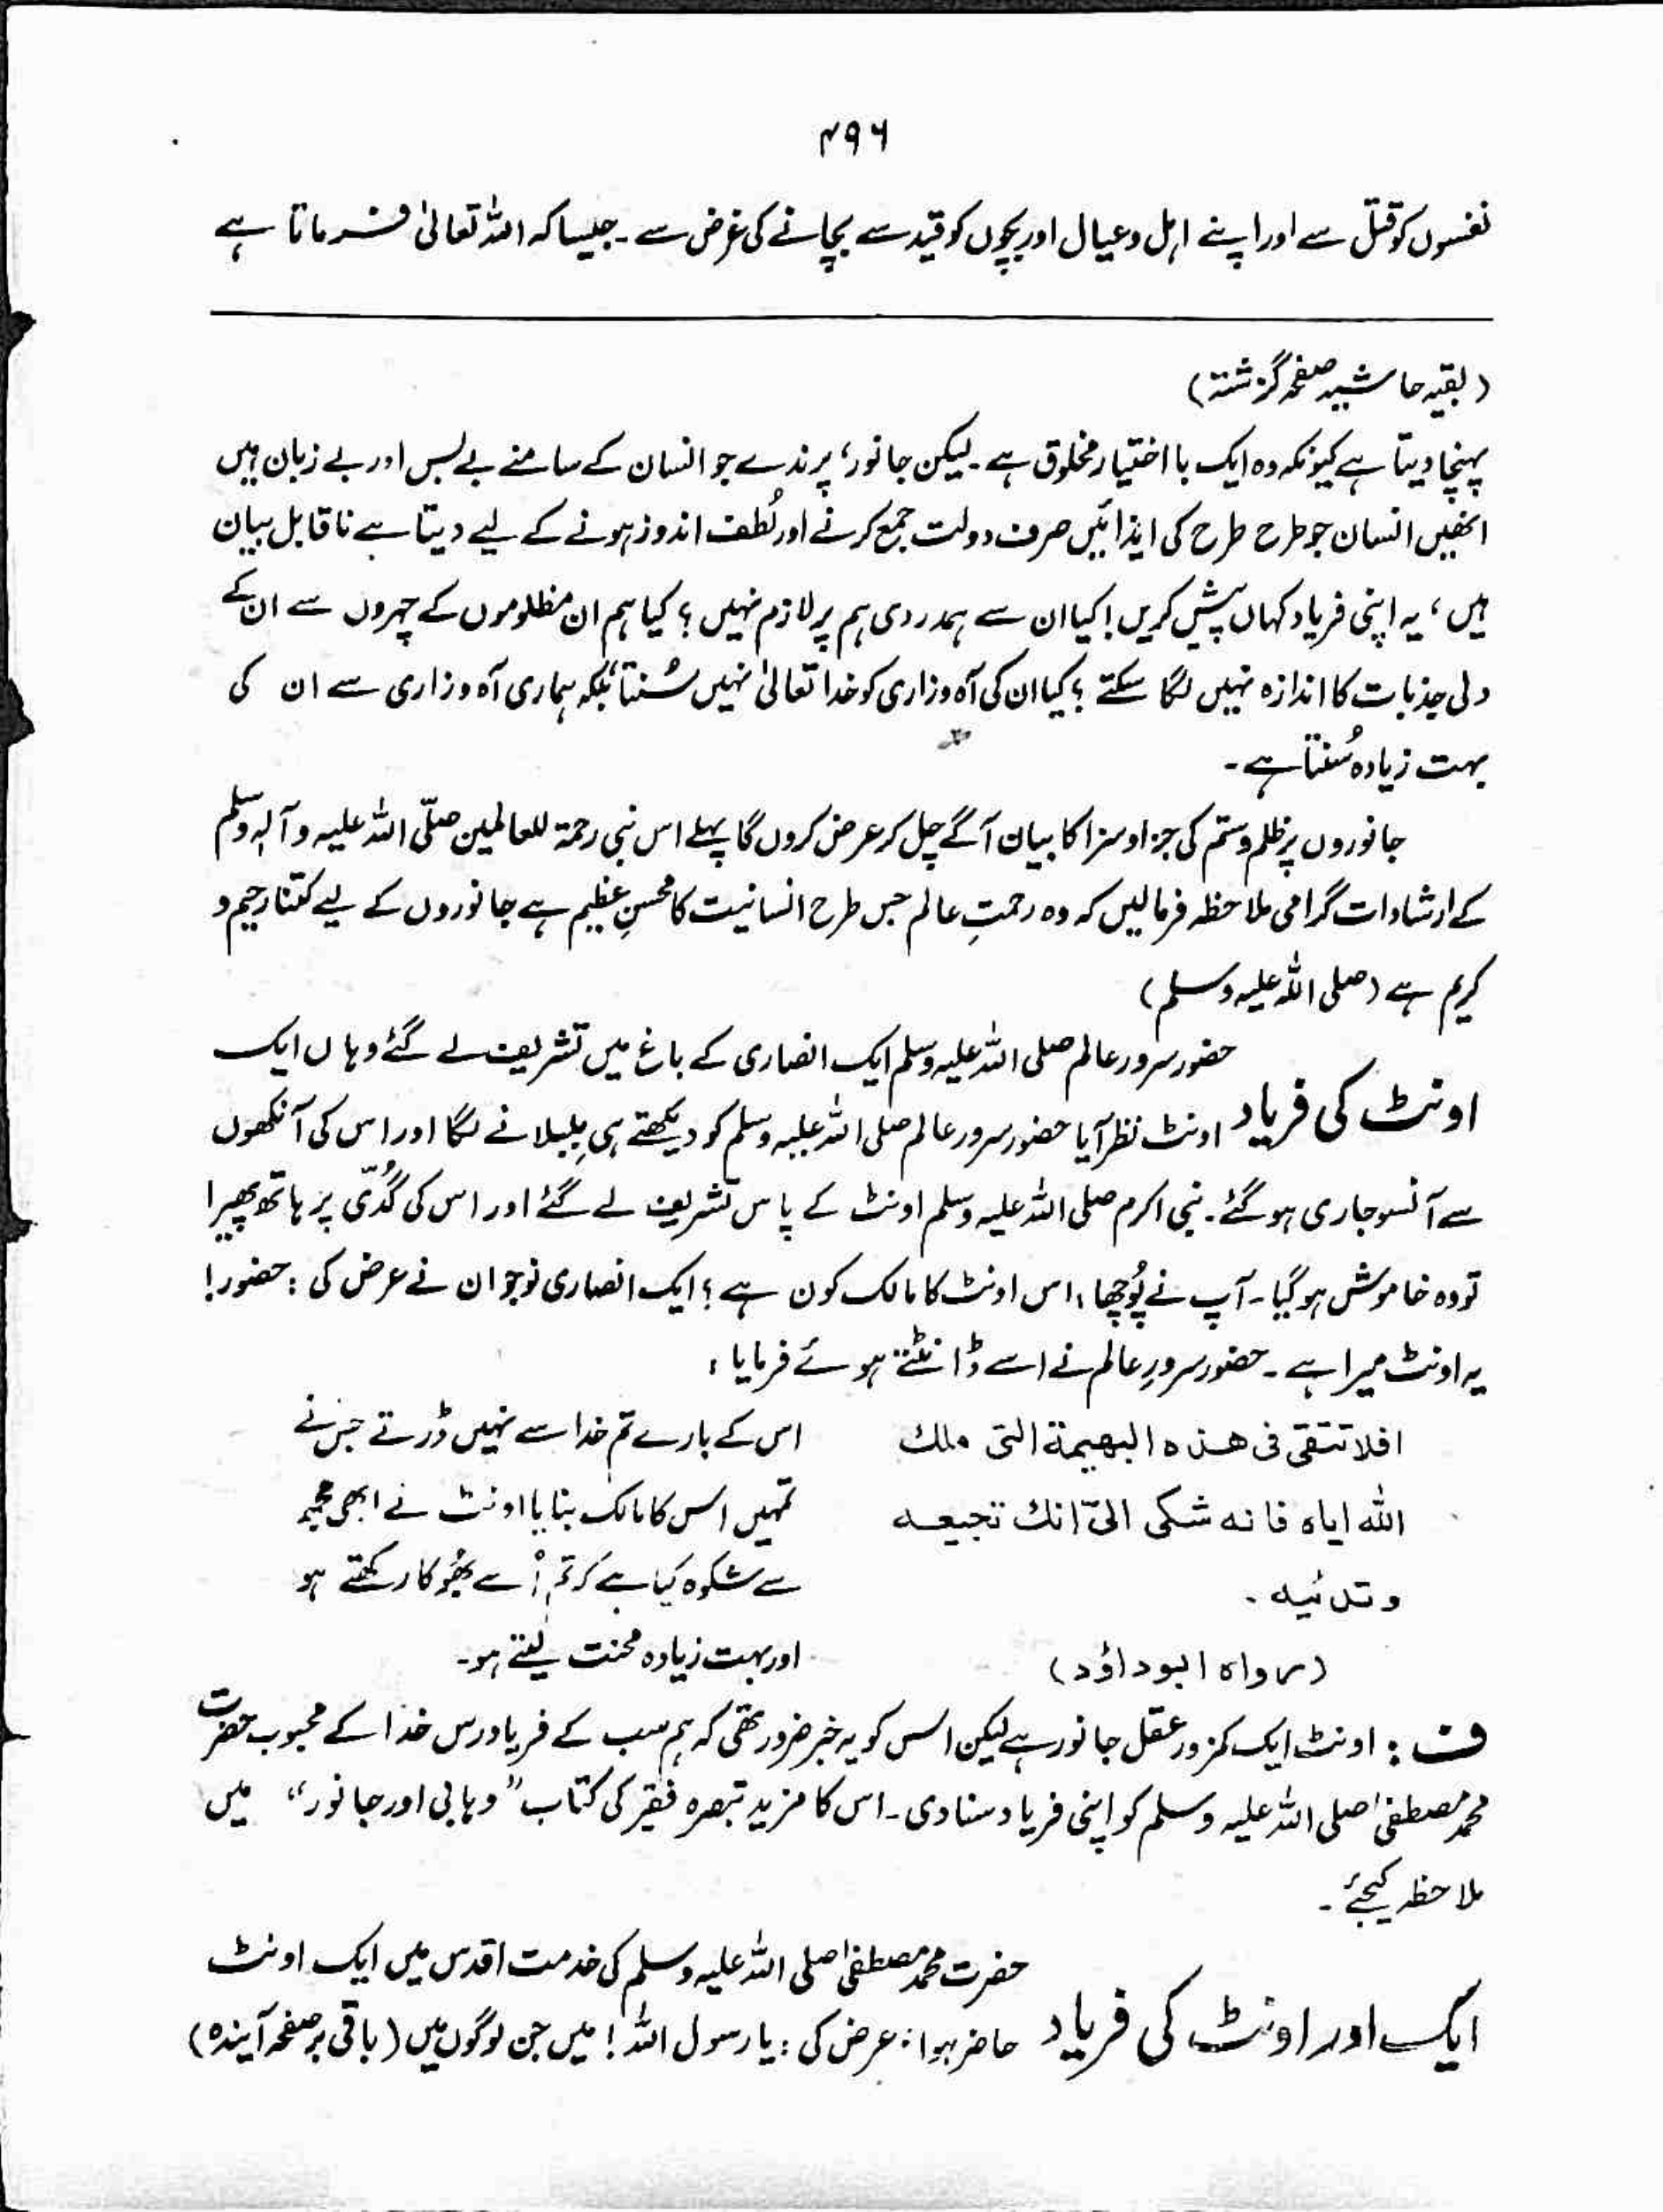 ۴۹۶
نفسوں کو قتل سے اور اپنے اہل و عیال اور بچوں کو قید سے بچانے کی غرض سے ۔ جیسا کہ اللہ تعالیٰ فرماتا ہے
(بقیہ حاشیہ صفحہ گزشتہ)
پہنچا دیتا ہے کیونکہ وہ ایک با اختیار مخلوق ہے ۔ لیکن جانور، پرندے جو انسان کے سامنے بے بس اور بے زبان ہیں
انھیں انسان جو طرح طرح کی ایذائیں صرف دولت جمع کرنے اور لُطف اندوز ہونے کے لیے دیتا ہے ناقابل بیان
ہیں، یہ اپنی فریاد کہاں پیش کریں! کیا ان سے ہمدردی ہم پر لازم نہیں؟ کیا ہم ان مظلوموں کے چہروں سے ان کے
دلی جذبات کا اندازہ نہیں لگا سکتے؟ کیا ان کی آہ و زاری کو خدا تعالیٰ نہیں سُنتا بلکہ ہماری آہ و زاری سے ان کی
بہت زیادہ سُنتا ہے ۔
جانوروں پر ظلم و ستم کی جزا و سزا کا بیان آگے چل کر عرض کروں گا پہلے اس نبی رحمۃ للعالمین صلّی اللہ علیہ وآلہٖ وسلم
کے ارشادات گرامی ملاحظہ فرمالیں کہ وہ رحمتِ عالم جس طرح انسانیت کا محسنِ عظیم ہے جانوروں کے لیے کتنا رحیم و
کریم ہے (صلی اللہ علیہ وسلم)
حضور سرور عالم صلی اللہ علیہ وسلم ایک انصاری کے باغ میں تشریف لے گئے وہاں ایک
اونٹ کی فریاد اونٹ نظر آیا حضور سرور عالم صلی اللہ علیہ وسلم کو دیکھتے ہی بِلبلانے لگا اور اس کی آنکھوں
سے آنسو جاری ہو گئے ۔ نبی اکرم صلی اللہ علیہ وسلم اونٹ کے پاس تشریف لے گئے اور اس کی گُدّی پر ہاتھ پھیرا
تو وہ خاموش ہو گیا ۔ آپ نے پُوچھا: اس اونٹ کا مالک کون ہے؟ ایک انصاری نوجوان نے عرض کی: حضور!
یہ اونٹ میرا ہے ۔ حضور سرورِ عالم نے اسے ڈانٹتے ہوئے فرمایا:
افلا تتقی فی ھذہ البھیمۃ التی ملك
اللہ ایاہ فانہ شکی الیّ انك تجیعہ
وتدئیہ ۔
(رواہ ابوداؤد)
اس کے بارے تم خدا سے نہیں ڈرتے جس نے
تمہیں اس کا مالک بنایا اونٹ نے ابھی مجھ
سے شکوہ کیا ہے کہ تم اُسے بھُوکا رکھتے ہو
اور بہت زیادہ محنت لیتے ہو ۔
ف: اونٹ ایک کمزور عقل جانور ہے لیکن اس کو یہ خبر ضرور تھی کہ ہم سب کے فریاد رس خدا کے محبوب حضرت
محمد مصطفیٰ صلی اللہ علیہ وسلم کو اپنی فریاد سنا دی ۔ اس کا مزید تبصرہ فقیر کی کتاب ”وہابی اور جانور“ میں
ملاحظہ کیجئے ۔
حضرت محمد مصطفیٰ صلی اللہ علیہ وسلم کی خدمت اقدس میں ایک اونٹ
ایک اور اونٹ کی فریاد حاضر ہوا: عرض کی: یا رسول اللہ! میں جن لوگوں میں (باقی بر صفحہ آیندہ)